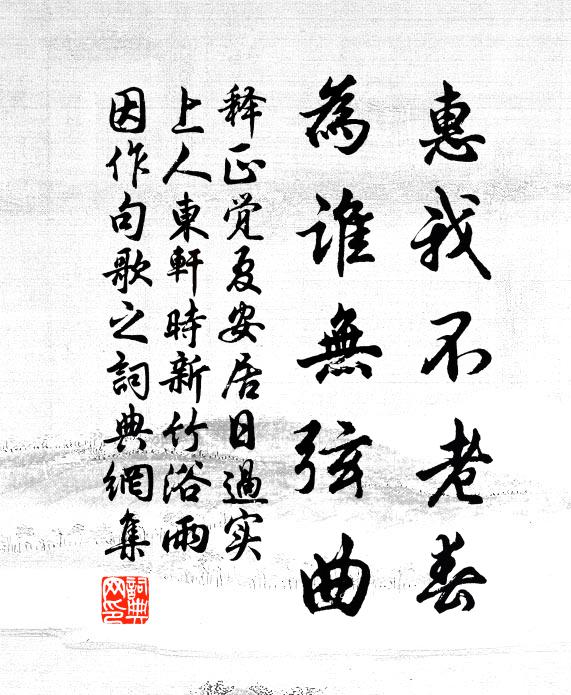 惠我不老春
為谁無弦曲
释正觉夏安居日過实
上人東軒時新竹浴雨
因作句歌之詞典網集
詞典
网印